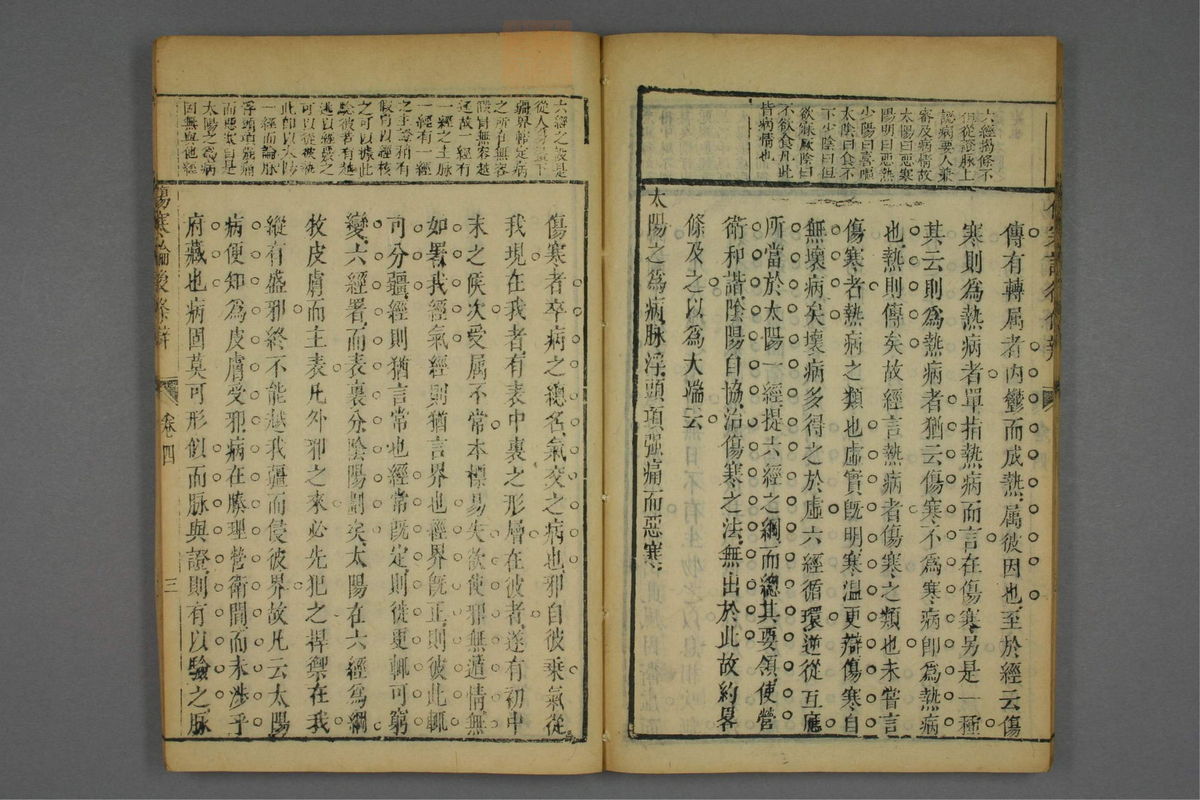 六經揭條不
但從證脉上
認病要人兼
審及病情故
太陽曰惡寒
陽明曰惡熱
少陽曰喜嘔
太陰曰食不
下少陰曰但
欲寐厥陰曰
不欲食凡此
皆病情也
傳有轉属者內鬱而成熱属彼因也至於經云傷
寒則爲熱病者單指熱病而言在傷寒另是一種
其云則爲熱病者猶云傷寒不爲寒病卽爲熱病
也熱則傳矣故經言熱病者傷寒之類也未嘗言
傷寒者熱病之類也虛實旣明寒溫更辯傷寒自
無壞病矣壞病多得之於虛六經循環逆從互應
所當於太陽一經提六經之綱而總其要領使營
衛和諧陰陽自協治傷寒之法無出於此故約畧
條及之以爲大端云
太陽之爲病脉浮頭項强痛而惡寒
六經之設是
從人身畫下
疆界帖定病
之所在無容
混因無容越
逗故一經有
一經之主脉
一經有一經
之主證稍有
假冐以經核
之可以據此
驗彼若有越
逃以經緝之
可以從彼
此卽以太陽
一經而論脉
浮頭項强痛
而惡寒曰是
太陽之爲病
因無與他經
傷寒者卒病之總名氣交之病也邪自彼乗氣從
我現在我者有表中裏之形層在彼者遂有初中
末之候次受属不常本標易失欲使邪無遁情無
如署我經氣經則猶言界也經界旣正則彼此輒
可分疆經則猶言常也經常旣定則徙更輒可窮
變六經署而表裏分陰陽劃矣太陽在六經爲綱
牧皮膚而主表凡外邪之來必先犯之捍禦在我
縱有盛邪終不能越我疆而侵彼界故凡云太陽
病便知爲皮膚受邪病在腠理營衛間而未渉乎
府藏也病固莫可形似而脉與證則有以驗之脉
傷寒論後條辯
卷四
三